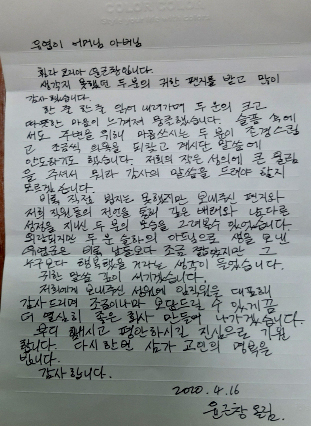 우영이 어머님 아버님
휠라 코리아 윤근창입니다.
생각지 못했던 두 분의 귀한 편지를 받고 많이
감사했습니다.
한 줄 한 줄 읽어 내려가며 두 분의 크고
따뜻한 마음이 느껴져 뭉클했습니다. 슬픔 속에
서도 주변을 위해 마음쓰시는 두 분이 존경스럽
고 조금씩 의욕을 되찾고 계시단 말씀에
안도하기도 했습니다. 저희의 작은 성의에 큰 울림
을 주셔서 뭐라 감사의 말씀을 드려야 할지
모르겠습니다.
비록 직접 뵙지는 못했지만 보내주신 편지와
저희 직원들의 전언을 통해 깊은 배려와 남다른
성정을 지니신 두 분의 모습을 그려볼수 있었습니다.
외람되지만 두 분 슬하의 아드님으로 생을 보낸
우영군은 비록 남들보다 조금 짧았지만 그
누구보다 행복했을 거라는 생각이 들었습니다.
귀한 말씀 깊이 새기겠습니다.
저희에게 보내주신 성원에 임직원을 대표해
감사드리며 조금이나마 보답드릴 수 있게끔
더 열심히 좋은 회사 만들어 나가겠습니다.
부디 힘내시고 평안하시길 진심으로 기원
합니다. 다시 한번 삼가 고인의 명복을
빕니다.
감사합니다.
2020.4.16
윤근창 올림.